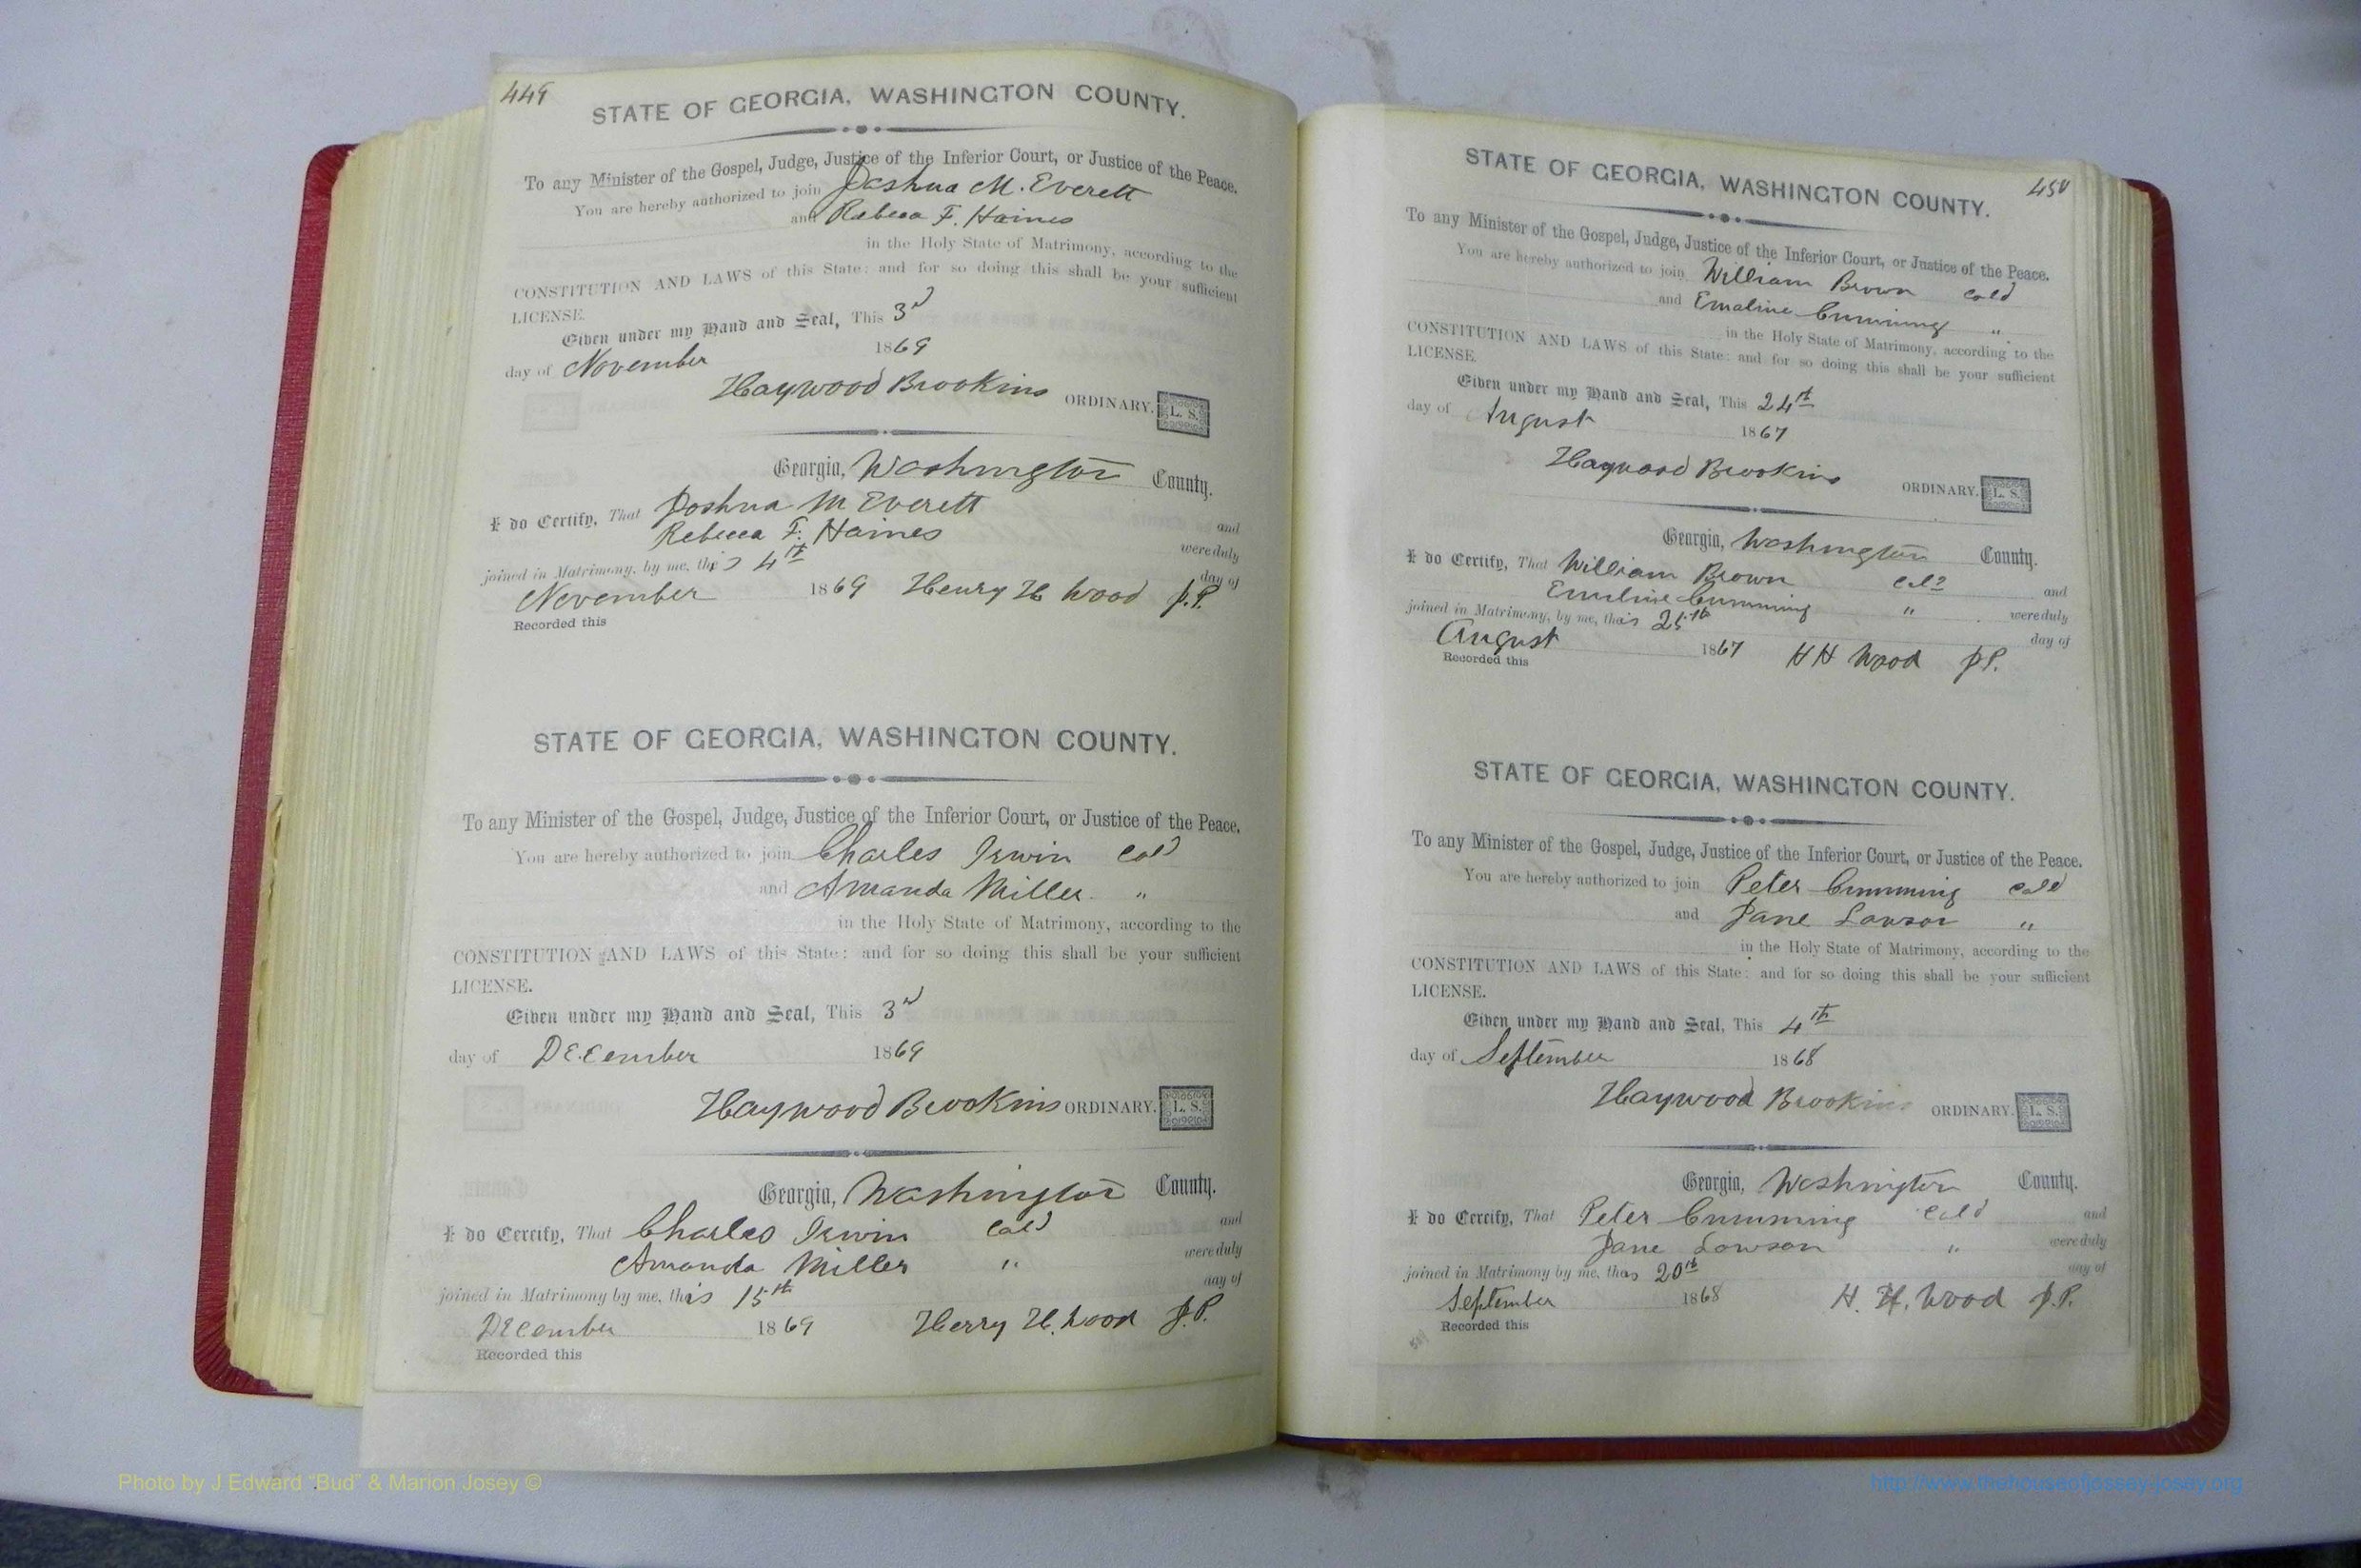 449
STATE OF GEORGIA, WASHINGTON COUNTY.
To any Minister of the Gospel, Judge, Justice of the Inferior Court, or Justice of the Peace.
You are hereby authorized to join Joshua M. Everett
and Rebeca F. Haines
in the Holy State of Matrimony, according to the
CONSTITUTION AND LAWS of this State: and for so doing this shall be your sufficient
LICENSE.
Given under my Hand and Seal, This 3d
day of November 1869
Haywood Brookins ORDINARY. L. S.
Georgia, Washington County.
I do Certify, That Joshua M Everett and
Rebecca F. Haines were duly
joined in Matrimony, by me, this 4th day of
November 1869 Henry H Wood J.P.
Recorded this
STATE OF GEORGIA, WASHINGTON COUNTY.
To any Minister of the Gospel, Judge, Justice of the Inferior Court, or Justice of the Peace.
You are hereby authorized to join Charles Irwin Cold
and Amanda Miller. "
in the Holy State of Matrimony, according to the
CONSTITUTION AND LAWS of this State: and for so doing this shall be your sufficient
LICENSE.
Given under my Hand and Seal, This 3d
day of December 1869
Haywood Brookins ORDINARY. L. S.
Georgia, Washington County.
I do Certify, That Charles Irwin Cold and
Amanda Miller " were duly
joined in Matrimony by me, this 15th day of
December 1869 Henry H. Wood J.P.
Recorded this
450
STATE OF GEORGIA, WASHINGTON COUNTY.
To any Minister of the Gospel, Judge, Justice of the Inferior Court, or Justice of the Peace.
You are hereby authorized to join William Brown Cold
and Emaline Cumming "
in the Holy State of Matrimony, according to the
CONSTITUTION AND LAWS of this State: and for so doing this shall be your sufficient
LICENSE.
Given under my Hand and Seal, This 24th
day of August 1867
Haywood Brookins ORDINARY. L. S.
Georgia, Washington County.
I do Certify, That William Brown Cold and
Emeline Cumming " were duly
joined in Matrimony, by me, this 25th day of
August 1867 H H Wood J.P.
Recorded this
STATE OF GEORGIA, WASHINGTON COUNTY.
To any Minister of the Gospel, Judge, Justice of the Inferior Court, or Justice of the Peace.
You are hereby authorized to join Peter Cumming Cold
and Jane Lawson "
in the Holy State of Matrimony, according to the
CONSTITUTION AND LAWS of this State: and for so doing this shall be your sufficient
LICENSE.
Given under my Hand and Seal, This 4th
day of September 1868
Haywood Brookins ORDINARY. L. S.
Georgia, Washington County.
I do Certify, That Peter Cumming Cold and
Jane Lowson " were duly
joined in Matrimony by me, this 20th day of
September 1868 H. H. Wood J.P.
Recorded this
Photo by J Edward "Bud" & Marion Josey ©
http://www.thehouseofjossey-josey.org